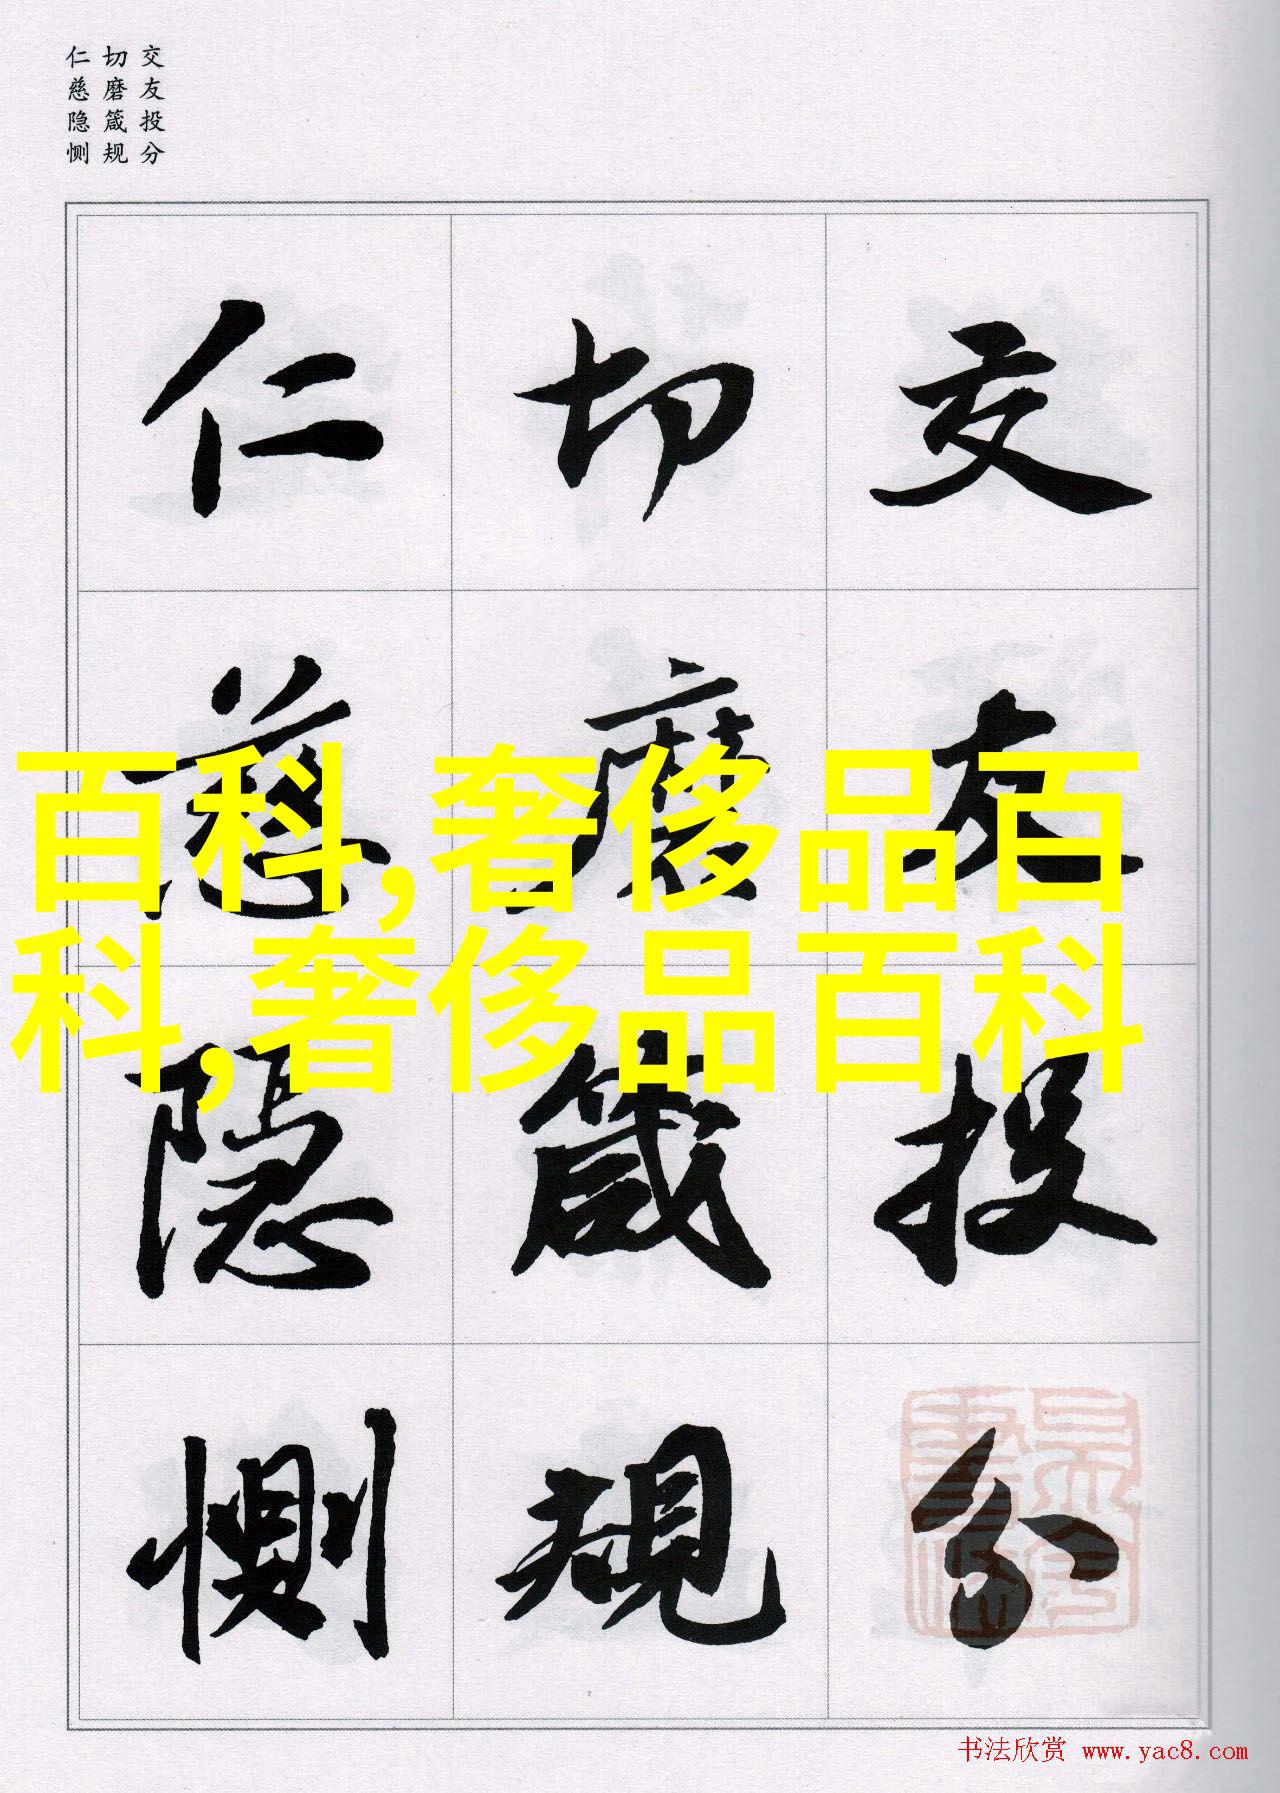 交友投分
切磨箴规
仁慈隐恻
交友投分
切磨箴规
仁慈隐恻
百科,奢侈品百
科,奢侈品百科
书法欣赏 www.yac8.com